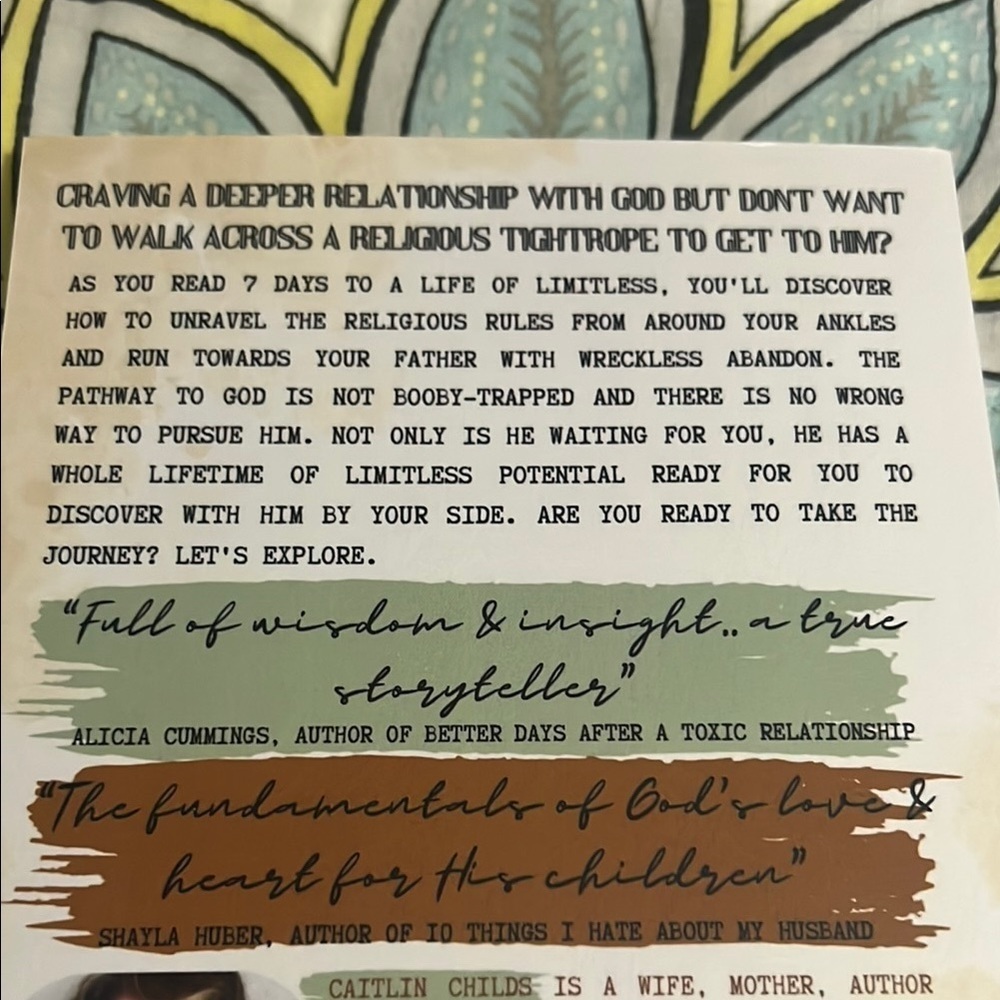 CRAVING A DEEPER RELATIONSHIP WITH GOD BUT DONT WANT
TO WALK ACROSS A RELIGIOUS TIGHTROPE TO GET TO HIM?
AS YOU READ 7 DAYS TO A LIFE OF LIMITLESS, YOU'LL DISCOVER
HOW TO UNRAVEL THE RELIGIOUS RULES FROM AROUND YOUR ANKLES
AND RUN TOWARDS YOUR FATHER WITH WRECKLESS ABANDON. THE
PATHWAY TO GOD IS NOT BOOBY-TRAPPED AND THERE IS NO WRONG
WAY TO PURSUE HIM. NOT ONLY IS HE WAITING FOR YOU, HE HAS A
WHOLE LIFETIME OF LIMITLESS POTENTIAL READY FOR YOU TO
DISCOVER WITH HIM BY YOUR SIDE. ARE YOU READY TO TAKE THE
JOURNEY? LET'S EXPLORE.
"Full of wisdom & insight.. a true
storyteller"
ALICIA CUMMINGS, AUTHOR OF BETTER DAYS AFTER A TOXIC RELATIONSHIP
"The fundamentals of God's love &
heart for His children"
SHAYLA HUBER, AUTHOR OF 10 THINGS I HATE ABOUT MY HUSBAND
CAITLIN CHILDS IS A WIFE, MOTHER, AUTHOR